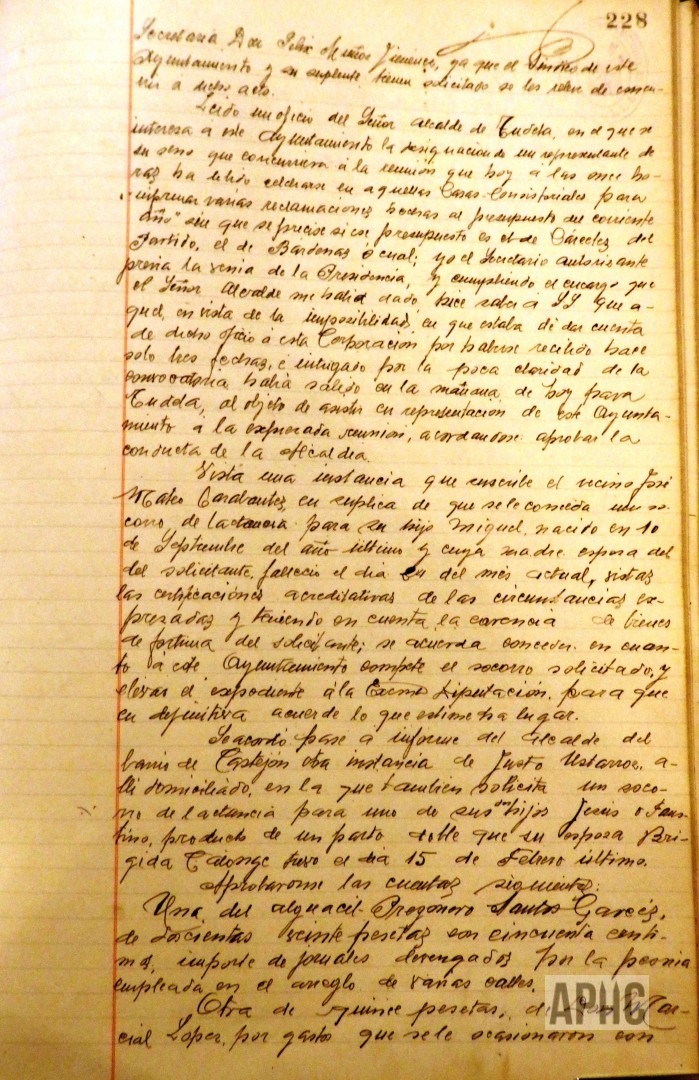 228
Secretaria Don Felix Muñoz Jimenez, ya que el Sindico de este
Ayuntamiento y su suplente tienen solicitado se les releve de concu-
rrir a dicho acto.
Leido un oficio del Señor Alcalde de Tudela, en el que se
interesa a este Ayuntamiento la designacion de un representante de
su seno que concurriera á la reunion que hoy a las once ho-
ras ha debido celebrarse en aquellas Casas Consistoriales para
"informar varias reclamaciones hechas al presupuesto del corriente
año" sin que se precise si ese presupuesto es el de Cárceles del
Partido, el de Bardenas ó cual; yo el Secretario autorizante
previa la venia de la Presidencia, y cumpliendo el encargo que
el Señor Alcalde me habia dado, hice saber a SS que a-
quel, en vista de la imposibilidad, en que estaba de dar cuenta
de dicho oficio á esta Corporacion por haberse recibido hace
solo tres fechas, é intrigado por la poca claridad de la
convocatoria habia salido en la mañana de hoy para
Tudela, al objeto de asistir en representacion de este Ayunta-
miento a la expresada reunion, acordandose aprobar la
conducta de la Alcaldia.
Vista una instancia que suscribe el vecino José
Mateo Carabantes, en suplica de que se le conceda un so-
corro de lactancia para su hijo Miguel, nacido en 10
de Septiembre del año ultimo y cuya madre esposa del
del solicitante, fallecio el dia 24 del mes actual, vistas
las certificaciónes acreditativas de las circunstancias ex-
presadas y teniendo en cuenta la carencia de bienes
de fortuna del solicitante; se acuerda conceder en cuan-
to á este Ayuntamiento compete el socorro solicitado, y
elevar el expediente á la Excma Diputación, para que
en definitiva acuerde lo que estime ha lugar.
Se acordó pase a informe del Alcalde del
barrio de Castejón otra instancia de Justo Ustarroz, a-
lli domiciliado, en la que tambien solicita un soco-
rro de lactancia para uno de sus dos hijos Jesus o Faus-
tino, producto de un parto doble que su esposa Bri-
gida Calonge tuvo el dia 15 de Febrero último.
Aprobaronse las cuentas siguientes:
Una del alguacil-Pregonero Santos Garcés,
de doscientas veinte pesetas con cincuenta centi-
mos, importe de jornales devengados por la peonia
empleada en el arreglo de varias calles.
Otra de quince pesetas, de Don Mar-
cial Lopez, por gastos que se le ocasionaron con
APHC